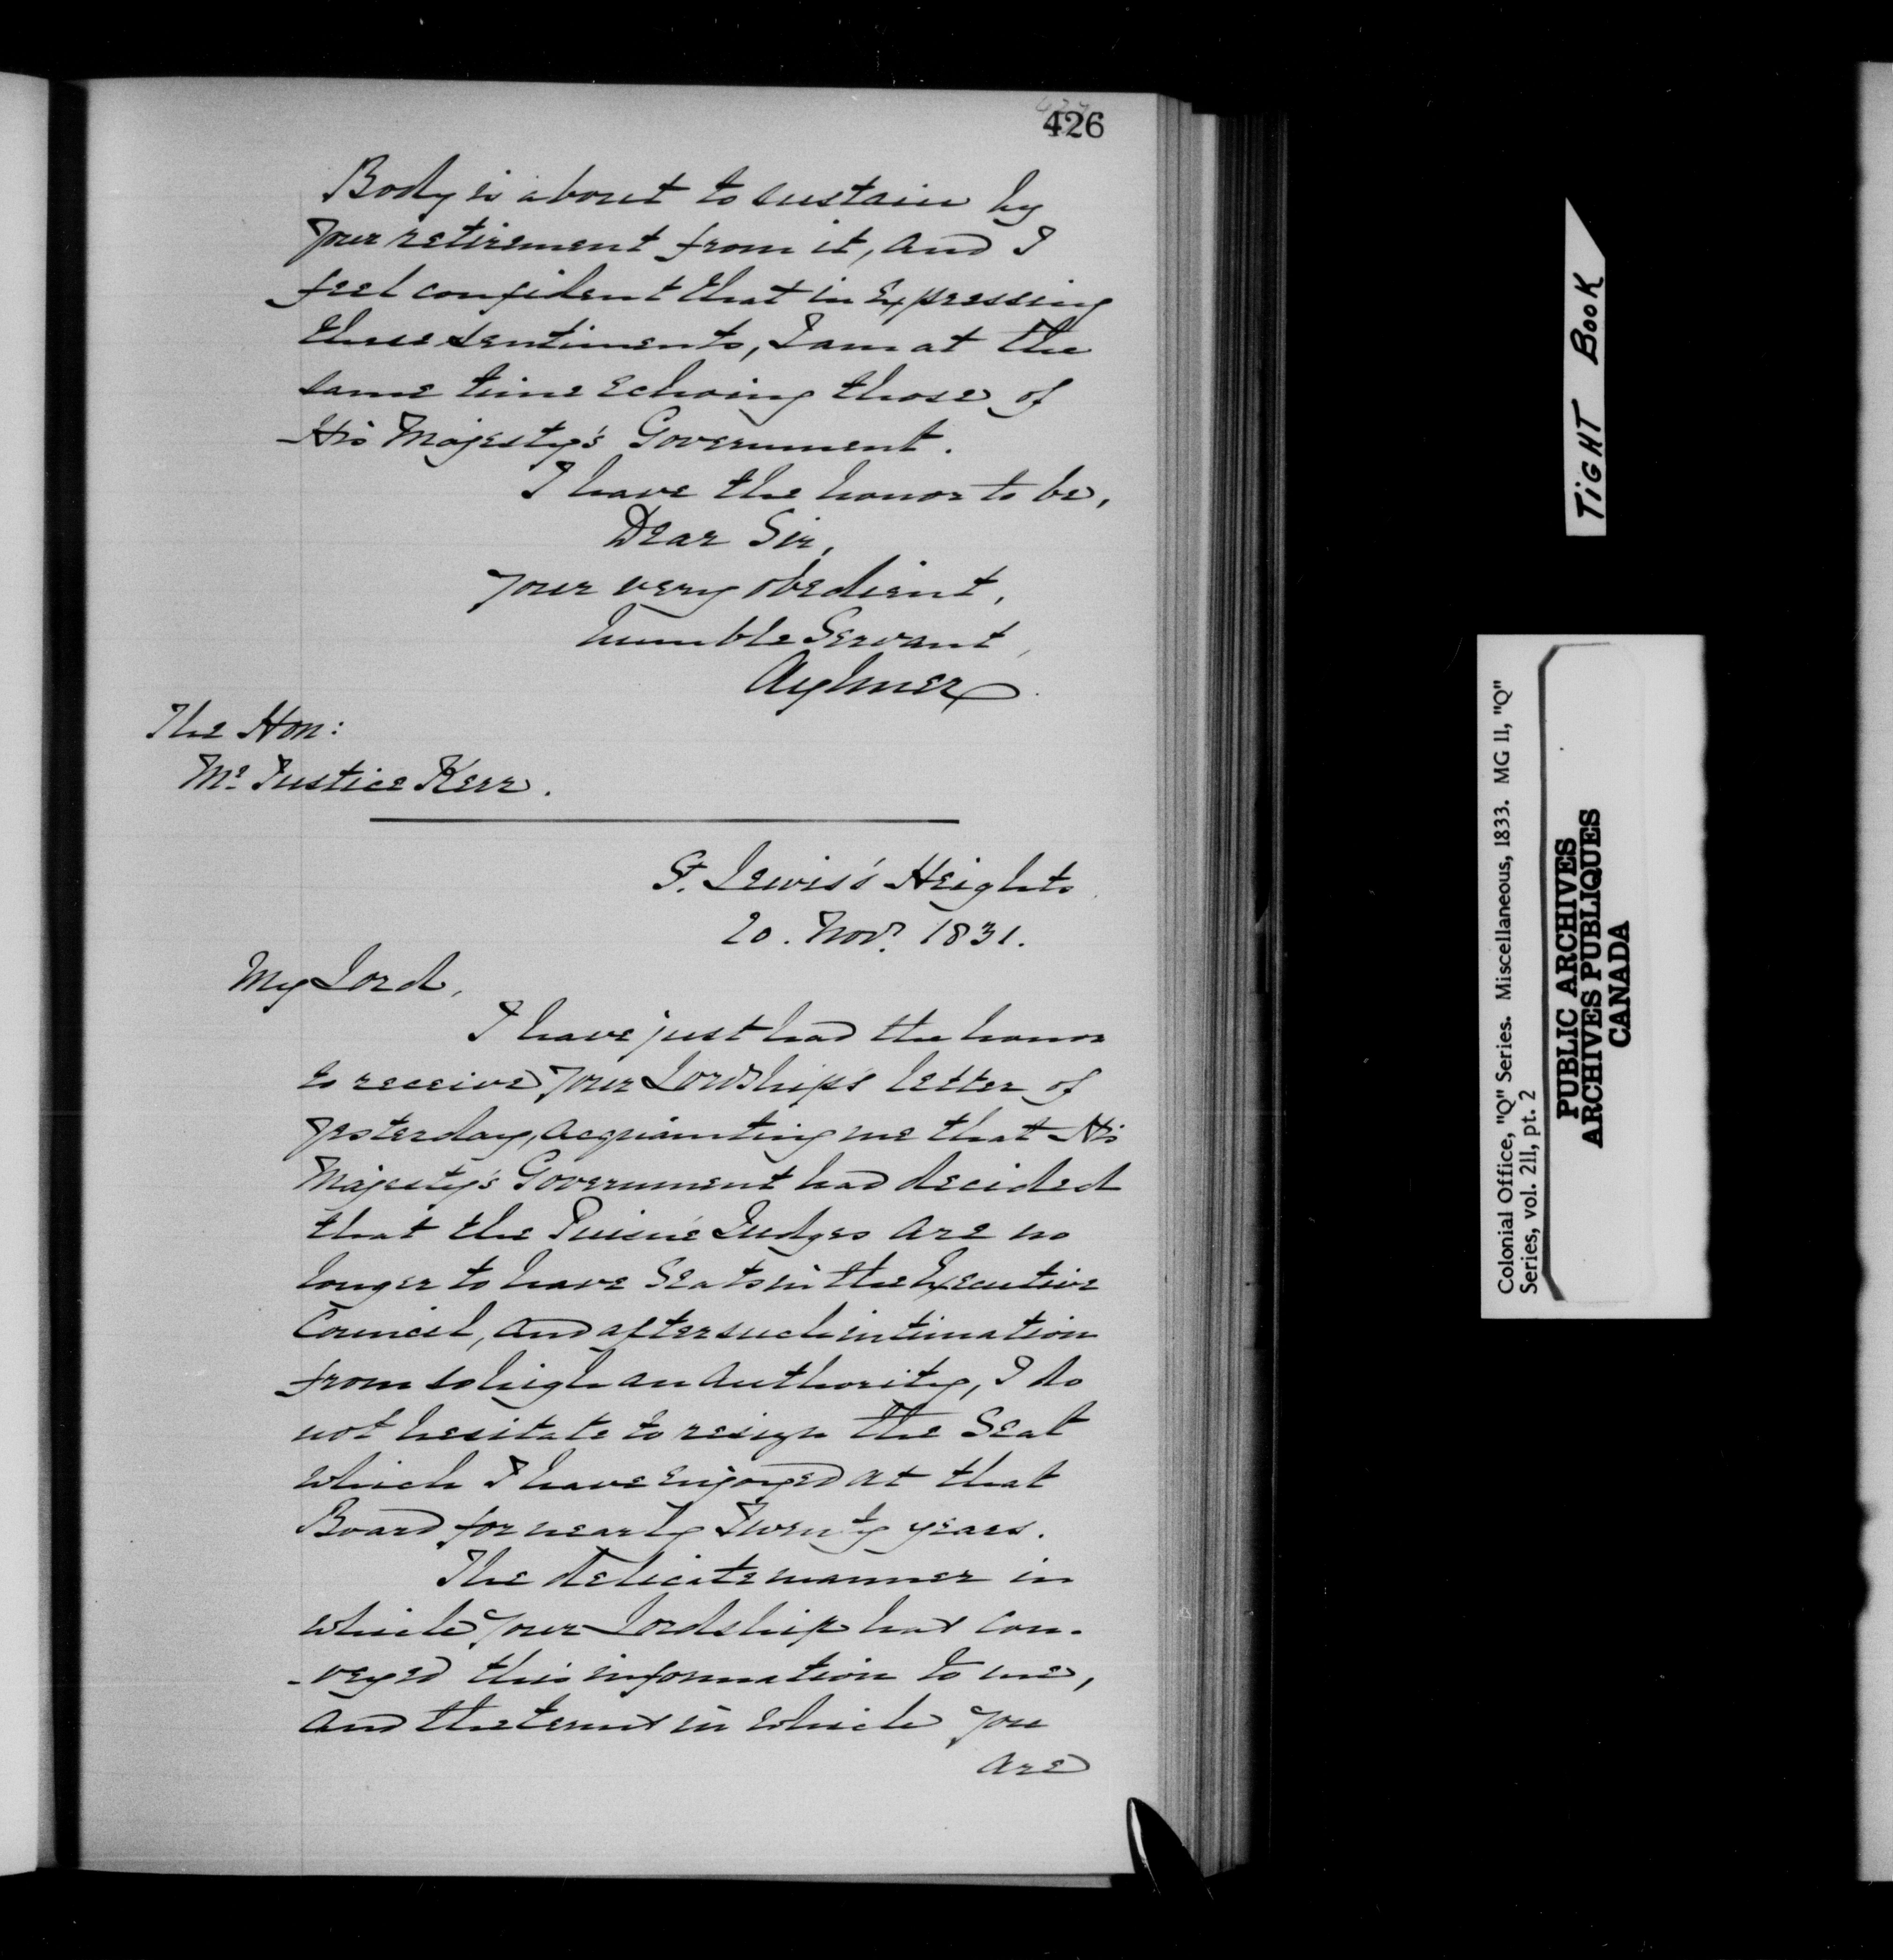 426
Body is about to sustain by
your retirement from it, and I
feel confident that in Expressing
these sentiments, I am at the
same time Echoing those of
His Majesty's Government.
I have the honor to be,
Dear Sir,
your very obedient,
humble Servant,
Aylmer.
The Hon:
Mr. Justice Kerr.
St. Lewis's Heights
20. Novr. 1831.
My Lord,
I have just had the honor
to receive your Lordship's letter of
yesterday, acquainting me that His
Majesty's Government had decided
that the Puisné Judges are no
longer to have Seats in the Executive
Council, and after such intimation
from so high an Authority, I do
not hesitate to resign the Seat
which I have enjoyed at that
Board for nearly Twenty years.
The delicate manner in
which your Lordship has con-
-veyed this information to me,
and the terms in which you
are
TIGHT BOOK
Colonial Office, "Q" Series. Miscellaneous, 1833. MG 11, "Q"
Series, vol. 211, pt. 2
PUBLIC ARCHIVES
ARCHIVES PUBLIQUES
CANADA